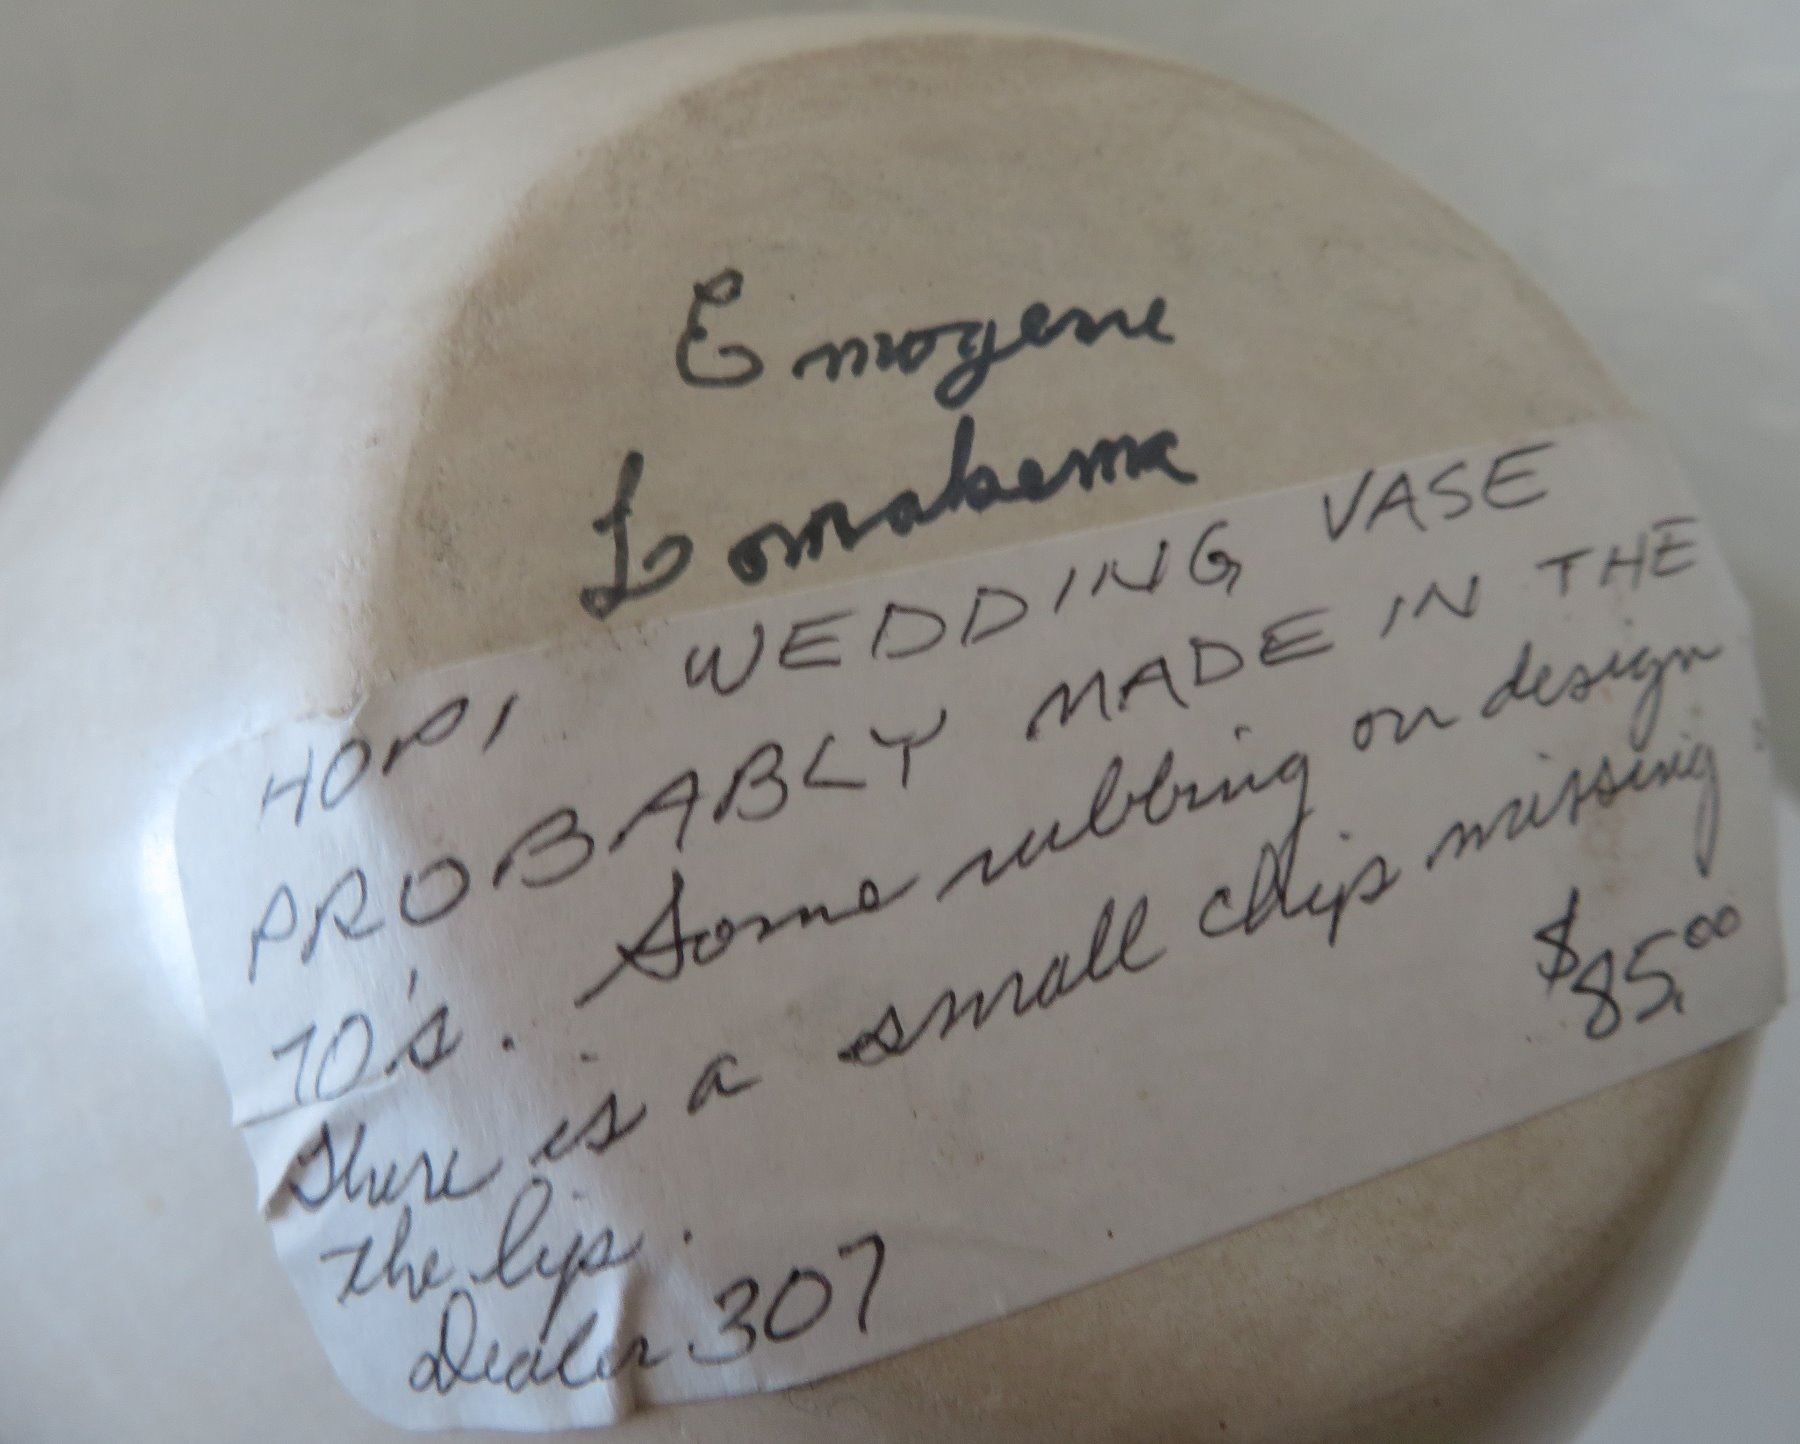 Emogene
Lomakema
HOPI WEDDING VASE
PROBABLY MADE IN THE
70's. Some rubbing on design
There is a small chip missing
the lip.
Dealer 307
$85.00